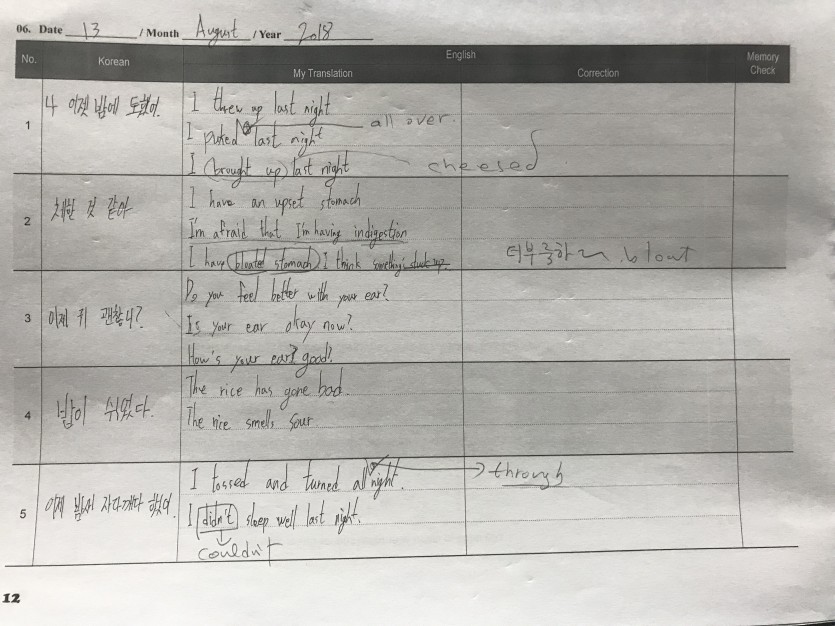 06. Date 13 / Month August / Year 2018
No. Korean English Memory Check
My Translation Correction
1 나 어젯밤에 토했어.
I threw up last night
all over.
I puked last night
I (brought up) last night
cheesed
2 체한 것 같다
I have an upset stomach
I'm afraid that I'm having indigestion
I have (bloated stomach) I think something's stuck up.
더부룩하 bloat
3 이제 귀 괜찮니?
Do you feel better with your ear?
Is your ear okay now?
How's your ear? good?
4 밥이 쉬었다.
The rice has gone bad.
The rice smells sour
5 어제 밤새 자다깨다 했어.
I tossed and turned all night. → through
I didn't sleep well last night.
couldn't
12